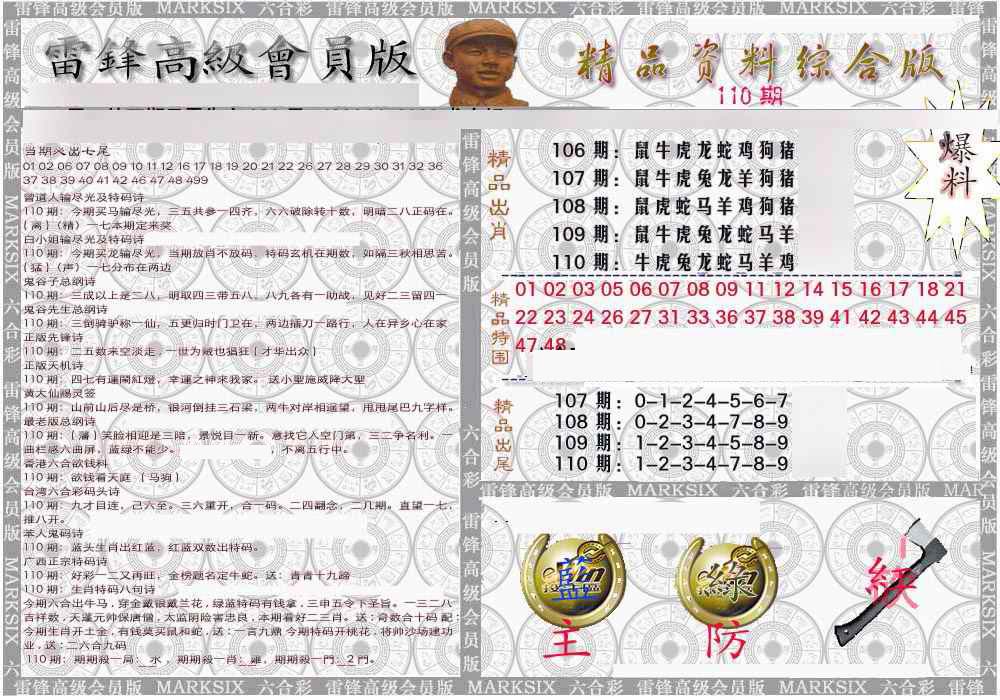 雷锋高级会员版 MARKSIX 六合彩 雷锋高级会员版 MARKSIX 六合彩 雷锋高级会员版 MARKSIX 六合彩
雷鋒高級會員版
精品资料综合版
110 期
爆料
当期火出七尾
01 02 06 07 08 09 10 11 12 16 17 18 19 20 21 22 26 27 28 29 30 31 32 36
37 38 39 40 41 42 46 47 48 499
曾道人输尽光及特码诗
110 期：今期买马输尽光，三五共参一四齐，六六破除转十数，明暗二八正码在。
{离}（精）一七本期定来奖
白小姐输尽光及特码诗
110 期：今期买龙输尽光，当期放肖不放码，特码玄机在期数，如隔三秋相思苦。
{猛}（声）一七分布在两边
鬼谷子总纲诗
110 期：三成以上是二八，明取四三带五八，六九各有一助战，见好二三留四一
鬼谷先生总纲诗
110 期：三倒骑驴称一仙，五更归时门卫在，两边插刀一路行，人在异乡心在家
正版先锋诗
110 期：二五数来空淡走，一世为贼也猖狂{才华出众}
正版天机诗
110 期：四七有運開紅燈，幸運之神來我家。送小聖施威降大聖
黄大仙赐灵签
110 期：山前山后尽是桥，银河倒挂三石梁，两牛对岸相遥望，甩甩尾巴九字样。
最老版总纲诗
110 期：{藩}笑脸相迎是三陪，景悦目一新。意找它人空门第，三二争名利。一
曲栏感六曲屏，蓝绿不能少。 ，不离五行中。
香港六合欲钱料
110 期：欲钱看天庭 {马驹}
台湾六合彩码头诗
110 期：九才目连，己六至。三六重开，合一码。二四翻念，二几期。直望一七，
推八开。
苯人鬼码诗
110 期：蓝头生肖出红蓝，红蓝双数出特码。
广西正宗特码诗
110 期：好彩一二又再旺，金榜题名定牛蛇。送：青青十九蹄
110 期：生肖特码八句诗
今期六合出牛马，穿金戴银戴兰花，绿蓝特码有钱拿，三申五令下圣旨。一三二八
吉祥数，天蓬元帅保唐僧，太监阴险害忠良，本期看好二三肖。送：奇数合十码 配：
今期生肖开土金，有钱莫买鼠和蛇，送：一言九鼎 今期特码开桃花，将帅沙场建功
业，送：二六合九码
110 期：期期殺一局：水，期期殺一肖：雞，期期殺一門：2 門。
精品出肖
106 期：鼠牛虎龙蛇鸡狗猪
107 期：鼠牛虎兔龙羊狗猪
108 期：鼠虎蛇马羊鸡狗猪
109 期：鼠牛虎兔龙蛇马羊
110 期：牛虎兔龙蛇马羊鸡
精品特围
01 02 03 05 06 07 08 09 11 12 14 15 16 17 18 21
22 23 24 26 27 31 33 36 37 38 39 41 42 43 44 45
47.48.
精品出尾
107 期：0-1-2-4-5-6-7
108 期：0-2-3-4-7-8-9
109 期：1-2-3-4-5-8-9
110 期：1-2-3-4-7-8-9
雷锋高级会员版 MARKSIX 六合彩 雷锋高级会员版 MAR
藍
主
綠
防
紅
殺
雷锋高级会员版 MARKSIX 六合彩 雷锋高级会员版 MARKSIX 六合彩 雷锋高级会员版 MARKSIX 六合彩 雷锋